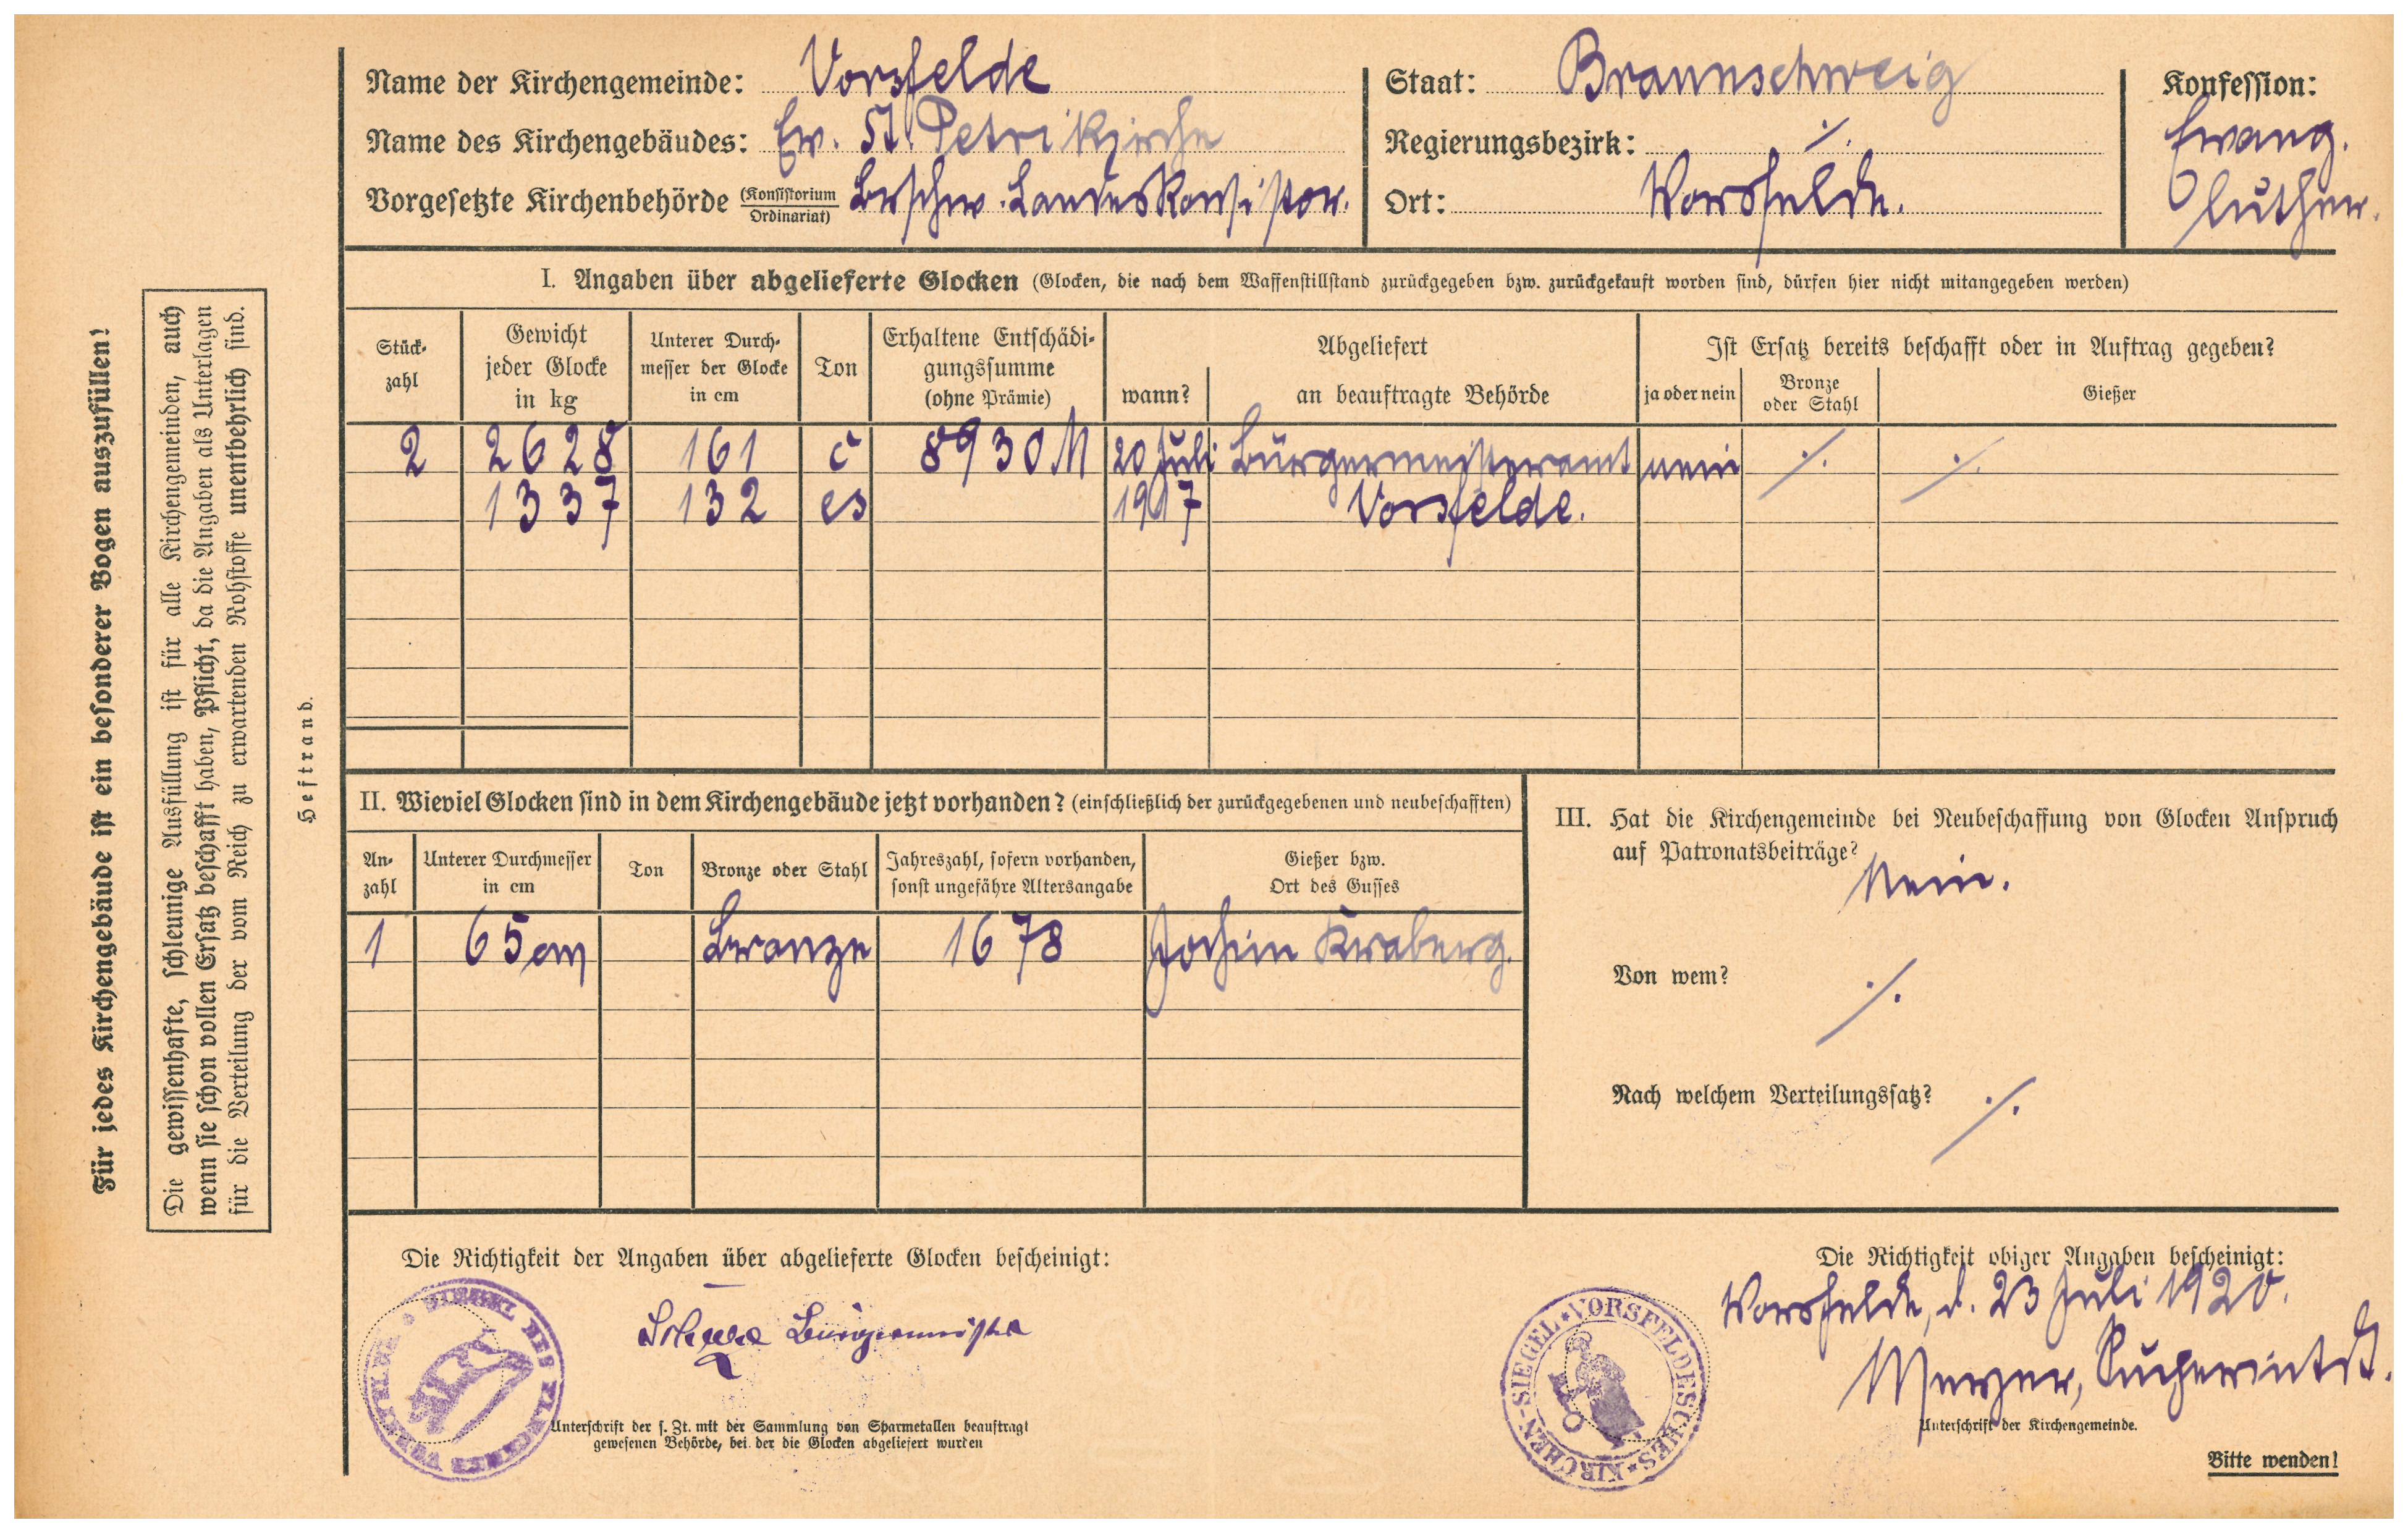 Für jedes Kirchengebäude ist ein besonderer Bogen auszufüllen!
Die gewissenhafte, schleunige Ausfüllung ist für alle Kirchengemeinden, auch
wenn sie schon vollen Ersatz beschafft haben, Pflicht, da die Angaben als Unterlagen
für die Verteilung der vom Reich zu erwartenden Rohstoffe unentbehrlich sind.
Heftrand.
Name der Kirchengemeinde: Vorsfelde
Name des Kirchengebäudes: Ev. St. Petrikirche
Vorgesetzte Kirchenbehörde (Konsistorium Ordinariat) Brschw. Landeskonsistor.
Staat: Braunschweig
Regierungsbezirk: ./.
Ort: Vorsfelde.
Konfession:
Evang.
luther.
I. Angaben über abgelieferte Glocken (Glocken, die nach dem Waffenstillstand zurückgegeben bzw. zurückgekauft worden sind, dürfen hier nicht mitangegeben werden)
Stück-
zahl
Gewicht
jeder Glocke
in kg
Unterer Durch-
messer der Glocke
in cm
Ton
Erhaltene Entschädi-
gungssumme
(ohne Prämie)
Abgeliefert
wann? an beauftragte Behörde
Ist Ersatz bereits beschafft oder in Auftrag gegeben?
ja oder nein
Bronze
oder Stahl
Gießer
2 2628 161 c 8930 M 20 Juli Bürgermeisteramt nein ./. ./.
1337 132 es 1917 Vorsfelde.
II. Wieviel Glocken sind in dem Kirchengebäude jetzt vorhanden? (einschließlich der zurückgegebenen und neubeschafften)
An-
zahl
Unterer Durchmesser
in cm
Ton
Bronze oder Stahl
Jahreszahl, sofern vorhanden,
sonst ungefähre Altersangabe
Gießer bzw.
Ort des Gusses
1 65 cm Bronze 1678 Jochim
III. Hat die Kirchengemeinde bei Neubeschaffung von Glocken Anspruch
auf Patronatsbeiträge?
Nein.
Von wem? ./.
Nach welchem Verteilungssatz? ./.
Die Richtigkeit der Angaben über abgelieferte Glocken bescheinigt:
Bürgermeister
SIEGEL DES FLECKENS VORSFELDE
Unterschrift der s. Zt. mit der Sammlung von Sparmetallen beauftragt
gewesenen Behörde, bei der die Glocken abgeliefert wurden
Die Richtigkeit obiger Angaben bescheinigt:
Vorsfelde, d. 23 Juli 1920.
Superintdt.
VORSFELDESCHES KIRCHEN-SIEGEL
Unterschrift der Kirchengemeinde.
Bitte wenden!